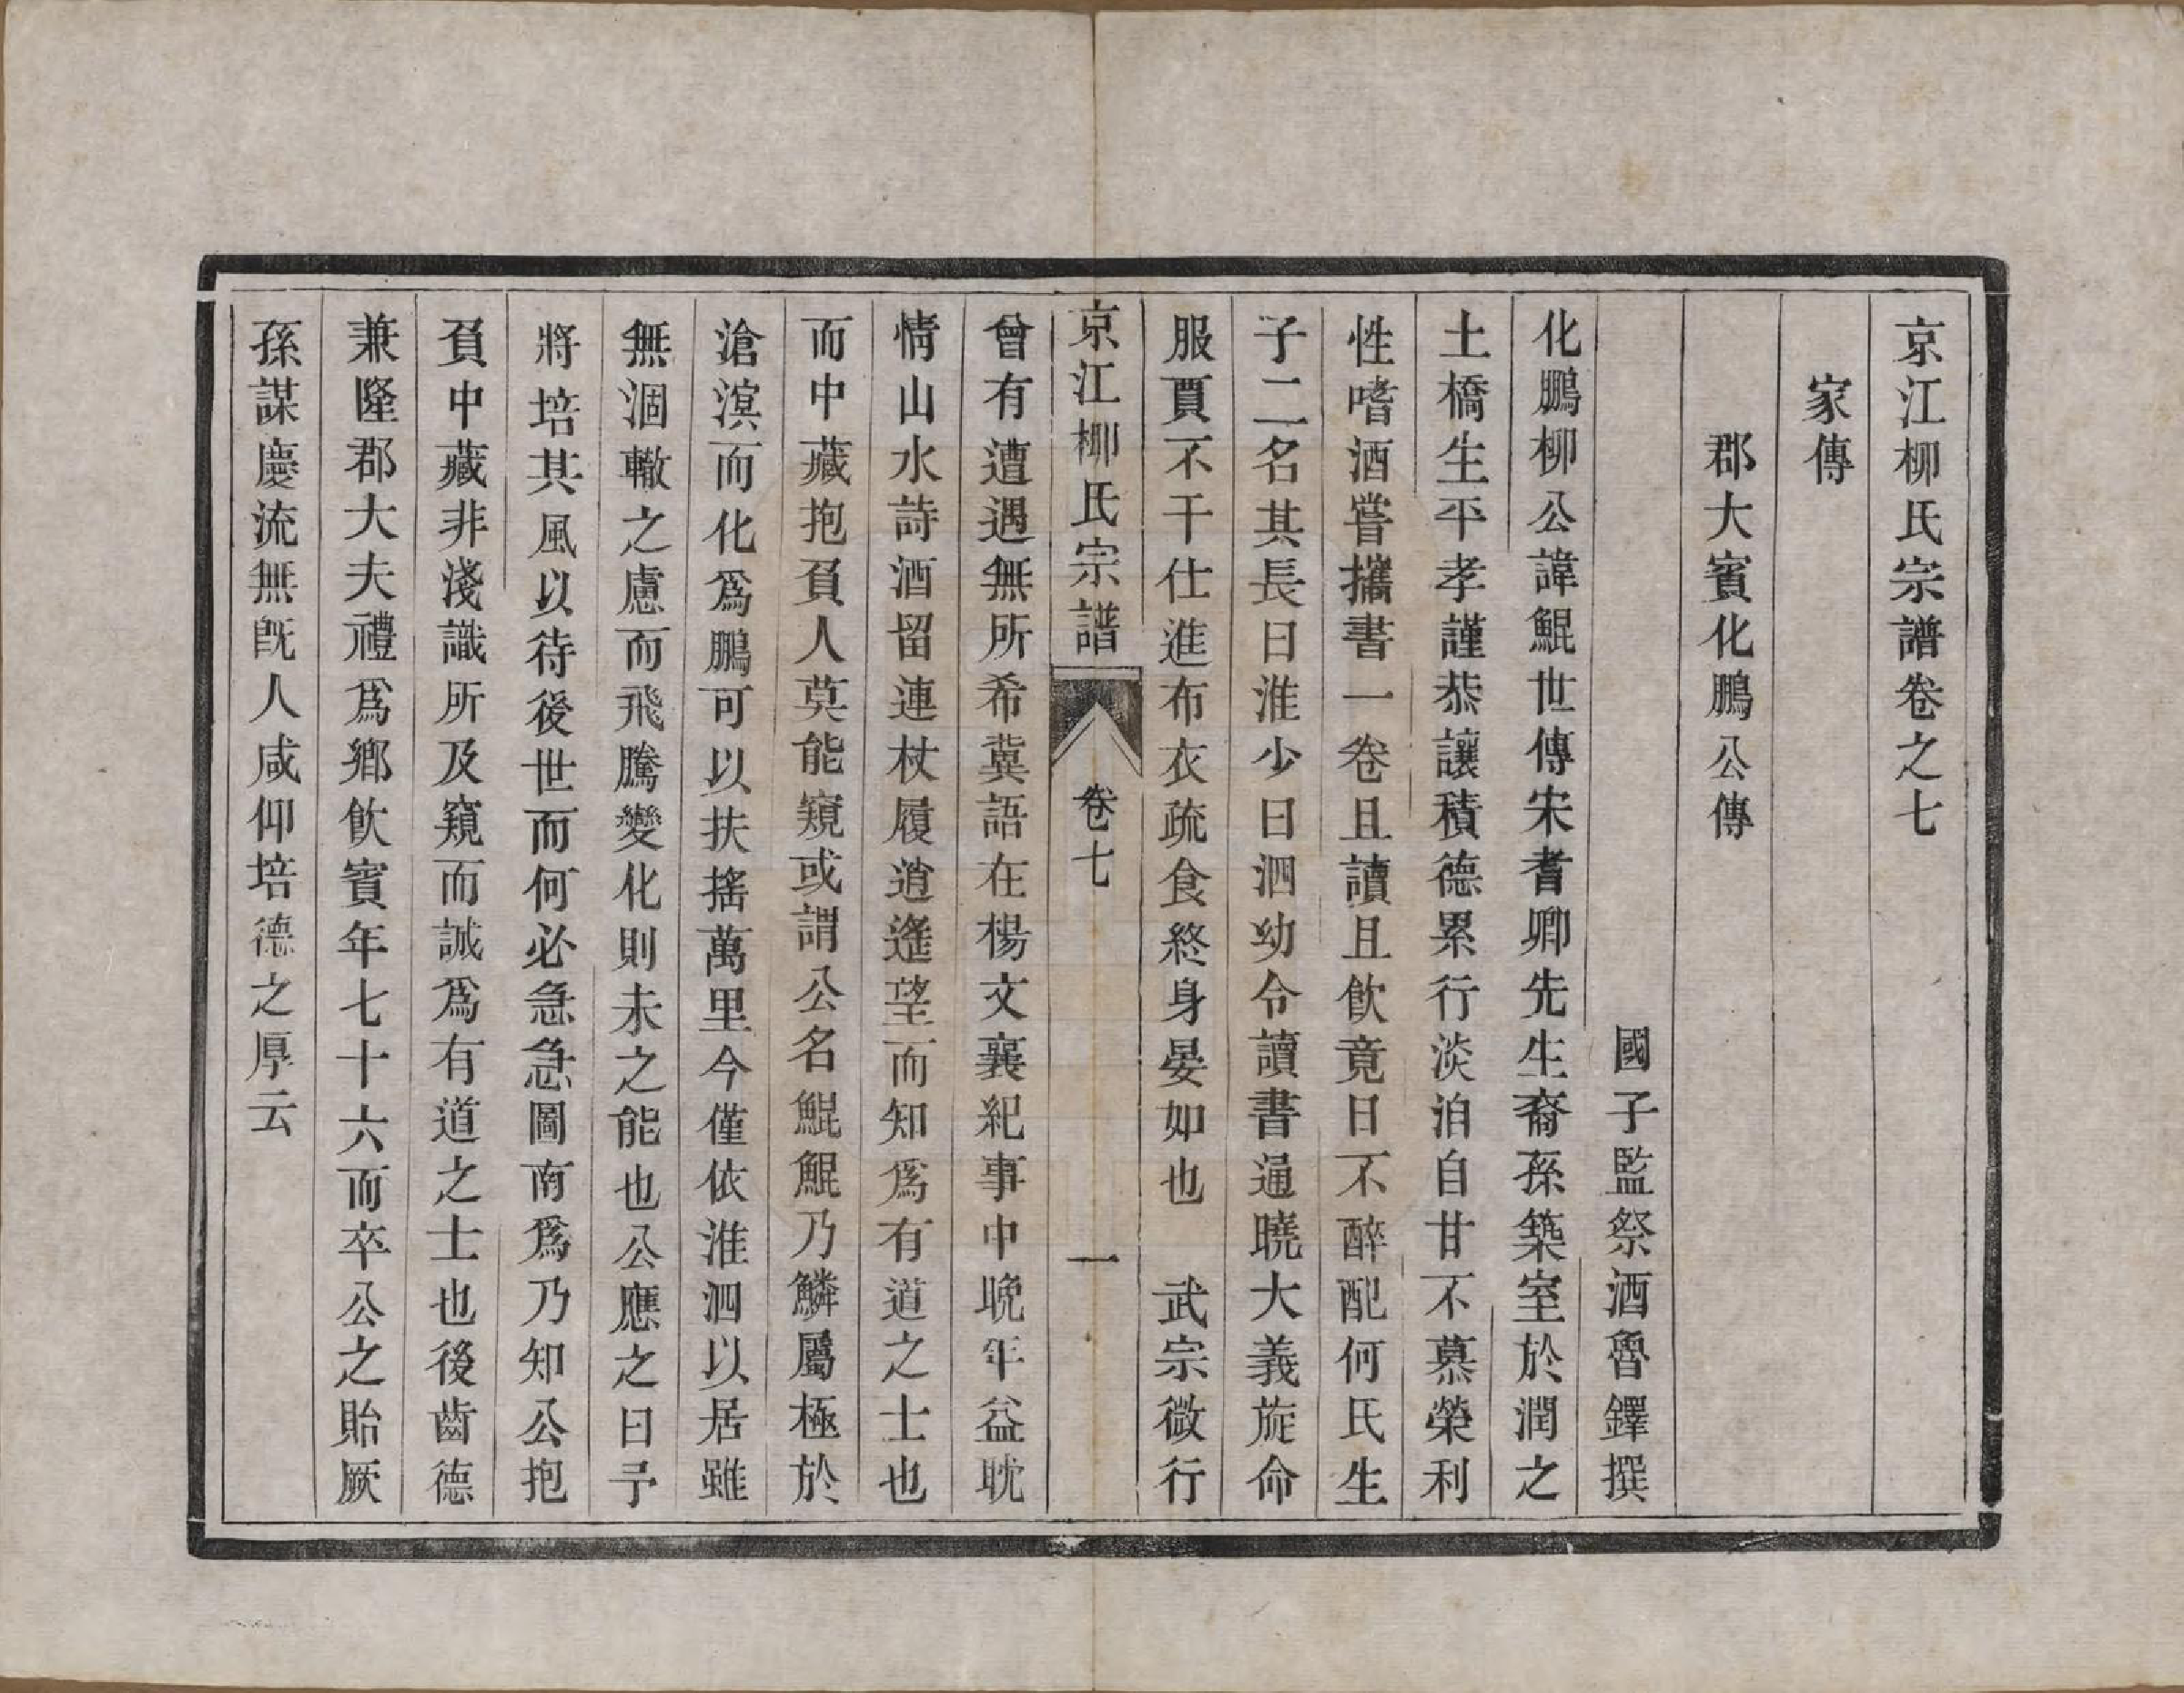 京江柳氏宗譜卷之七
家傳
郡大賓化鵬公傳
國子監祭酒魯鐸撰
化鵬柳公諱鯤世傳宋耆卿先生裔孫築室於潤之
土橋生平孝謹恭讓積德累行淡泊自甘不慕榮利
性嗜酒嘗攜書一卷且讀且飲竟日不醉配何氏生
子二名其長曰淮少曰泗幼令讀書通曉大義旋命
服賈不干仕進布衣疏食終身晏如也　武宗微行
京江柳氏宗譜　卷七　一
曾有遭遇無所希冀語在楊文襄紀事中晚年益耽
情山水詩酒留連杖履逍遙望而知爲有道之士也
而中藏抱負人莫能窺或謂公名鯤鯤乃鱗屬極於
滄溟而化爲鵬可以扶搖萬里今僅依淮泗以居雖
無涸轍之慮而飛騰變化則未之能也公應之曰予
將培其風以待後世而何必急急圖南爲乃知公抱
負中藏非淺識所及窺而誠爲有道之士也後齒德
兼隆郡大夫禮爲鄉飲賓年七十六而卒公之貽厥
孫謀慶流無旣人咸仰培德之厚云